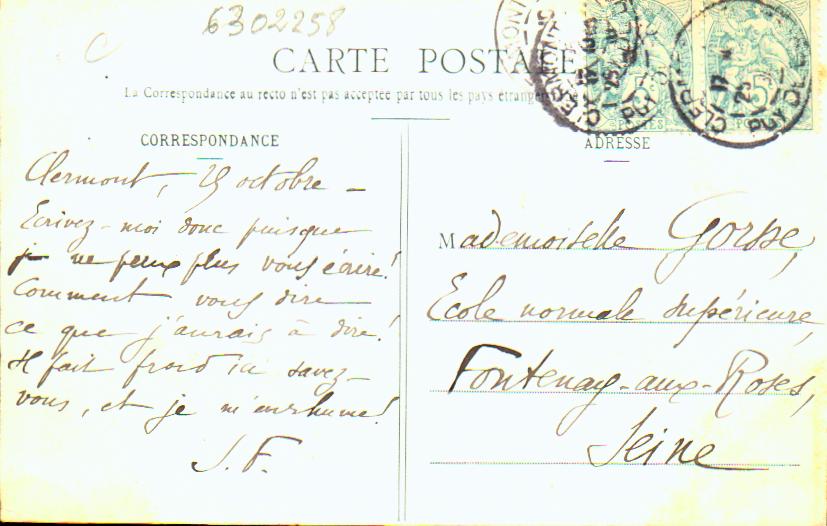 6302258
CARTE POSTALE
La Correspondance au recto n'est pas acceptée par tous les pays étrangers
CORRESPONDANCE
Clermont, 29 octobre –
Ecrivez-moi donc puisque
je ne peux plus vous écrire!
Comment vous dire
ce que j'aurais à dire!
Il fait froid ici savez-
vous, et je m'enrhume!
J. F.
ADRESSE
Mademoiselle Gorsse,
Ecole normale supérieure,
Fontenay-aux-Roses,
Seine
5
POSTES
CLERMONT
PUY DE